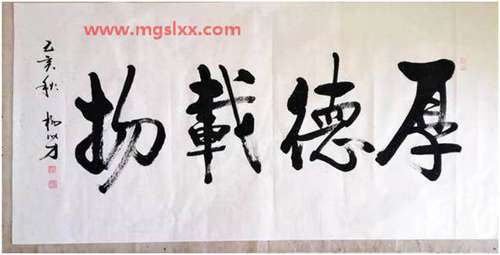 www.mgslxx.com
厚德載物
己亥秋 楊以才